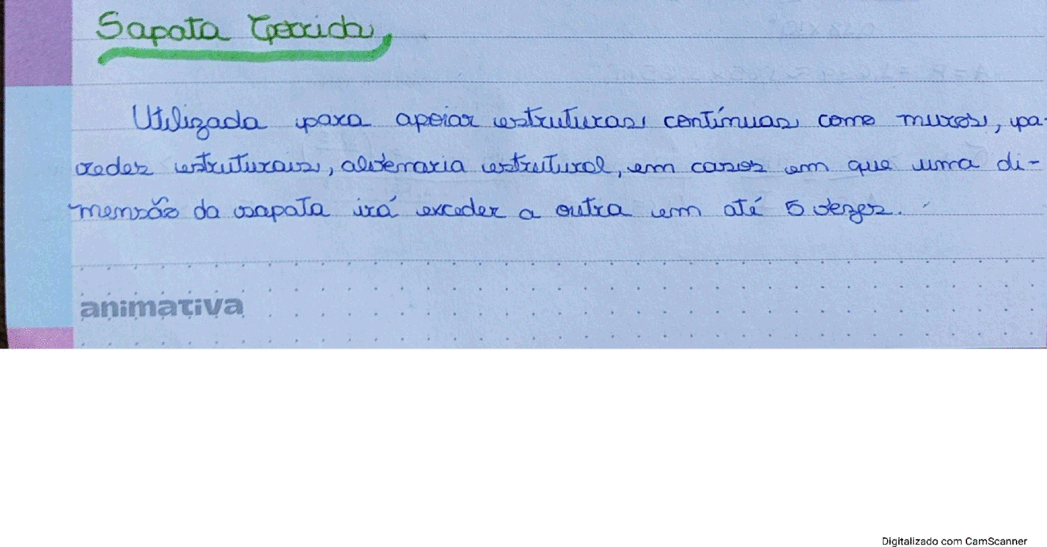 Sapata Corrida
Utilizada para apoiar estruturas contínuas como muros, pa-
redes estruturais, alvenaria estrutural, em casos em que uma di-
mensão da sapata irá exceder a outra em até 5 vezes.
animativa
Digitalizado com CamScanner